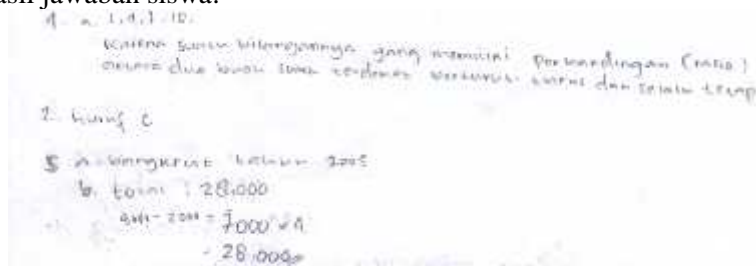 jawaban siswa.
1. a.
Karena suku bilangannya yang memiliki perbandingan (rasio)
antara dua buah suku terdekat berturut-turut dan selalu tetap
2. huruf c
5 a. bangkrut tahun 2005
b. total : 28.000
= 7000 x 4
= 28.000